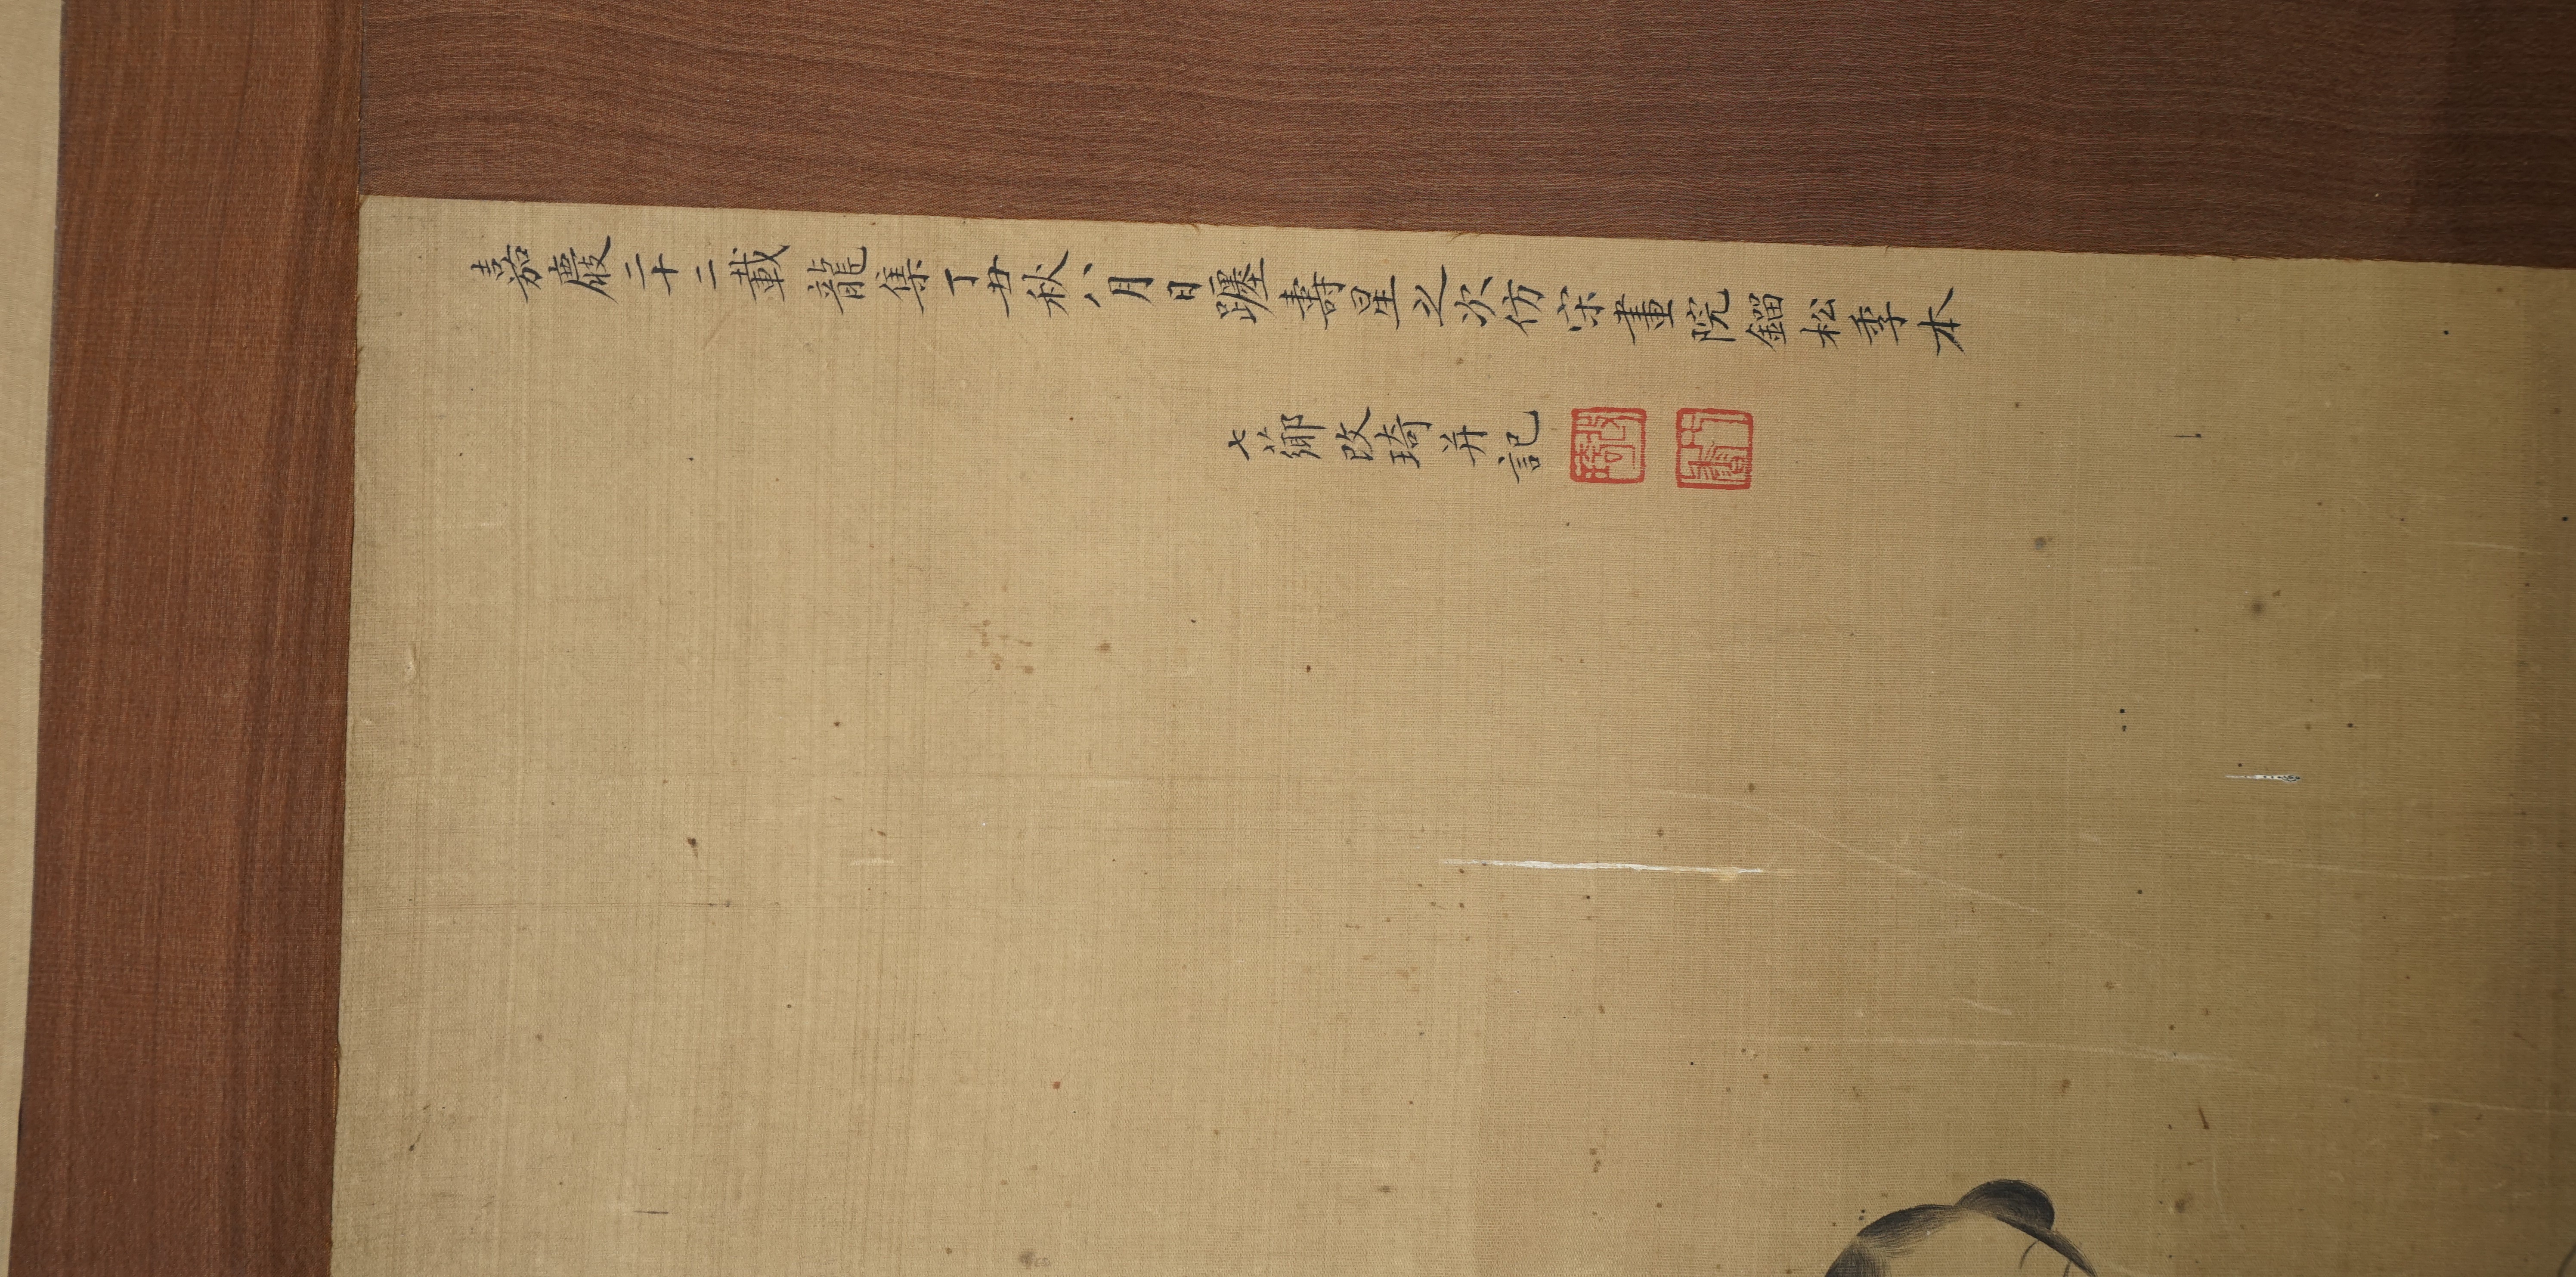 嘉慶二十二載龍集丁丑秋八月日躔壽星之次仿宋畫院鎦松年本
七薌改琦并記
改琦